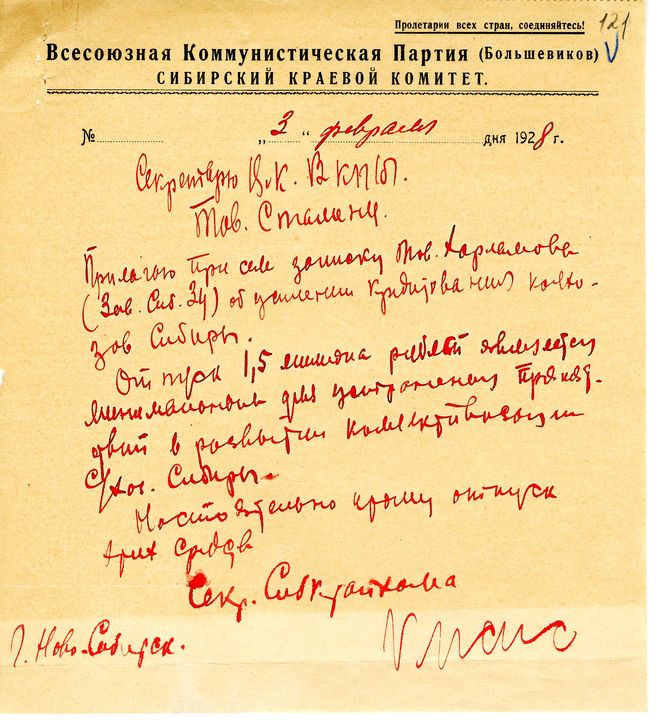 Пролетарии всех стран, соединяйтесь! 121
Всесоюзная Коммунистическая Партия (Большевиков)
СИБИРСКИЙ КРАЕВОЙ КОМИТЕТ.
№ „3“ февраля дня 1928 г.
Секретарю Ц.К. ВКП(б).
Тов. Сталину.
Прилагаю при сем записку тов. Харламова
(Зав. Сиб. ЗУ) об усилении кредитования колхо-
зов Сибири.
Отпуск 1,5 миллиона рублей является
минимальным для устранения препят-
ствий в развитии коллективизации
с/хоз. Сибири.
Настоятельно прошу отпуск
этих средств
Секр. Сибкрайкома
г. Ново-Сибирск.